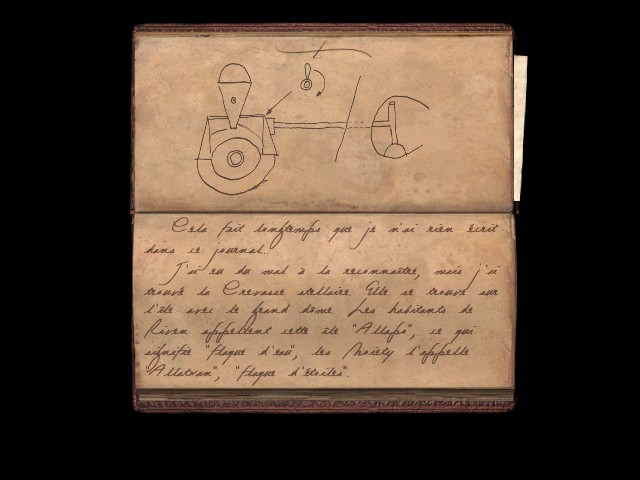 Cela fait longtemps que je n'ai rien écrit
dans ce journal...
J'ai eu du mal à la reconnaître, mais j'ai
trouvé la Crevasse stellaire. Elle se trouve sur
l'île avec le grand dôme. Les habitants de
Riven appellent cette île "Allapo", ce qui
signifie "flaque d'eau", les Moiety l'appelle
"Allatwan", "flaque d'étoiles".